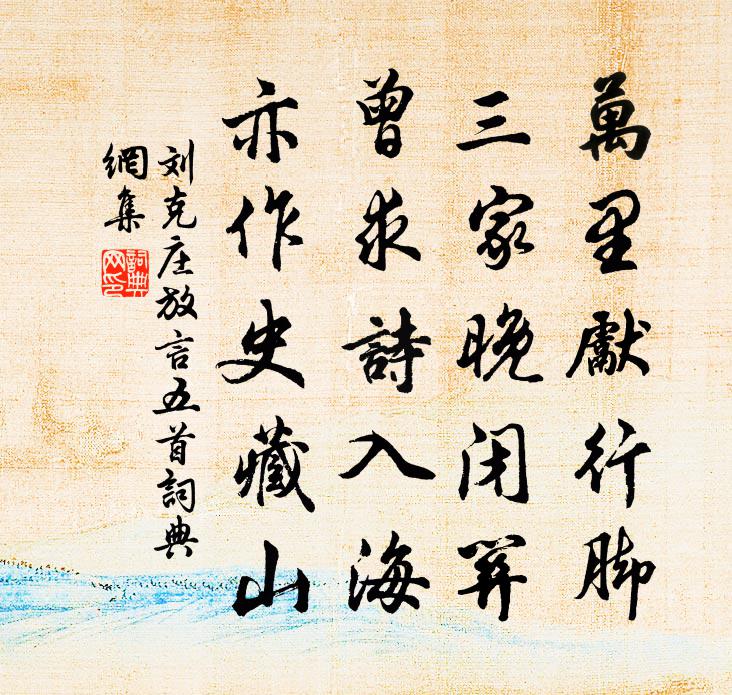 萬里獻行脚
三家晚闭关
曾求詩入海
亦作史藏山
刘克庄放言五首詞典
網集
詞典
网印